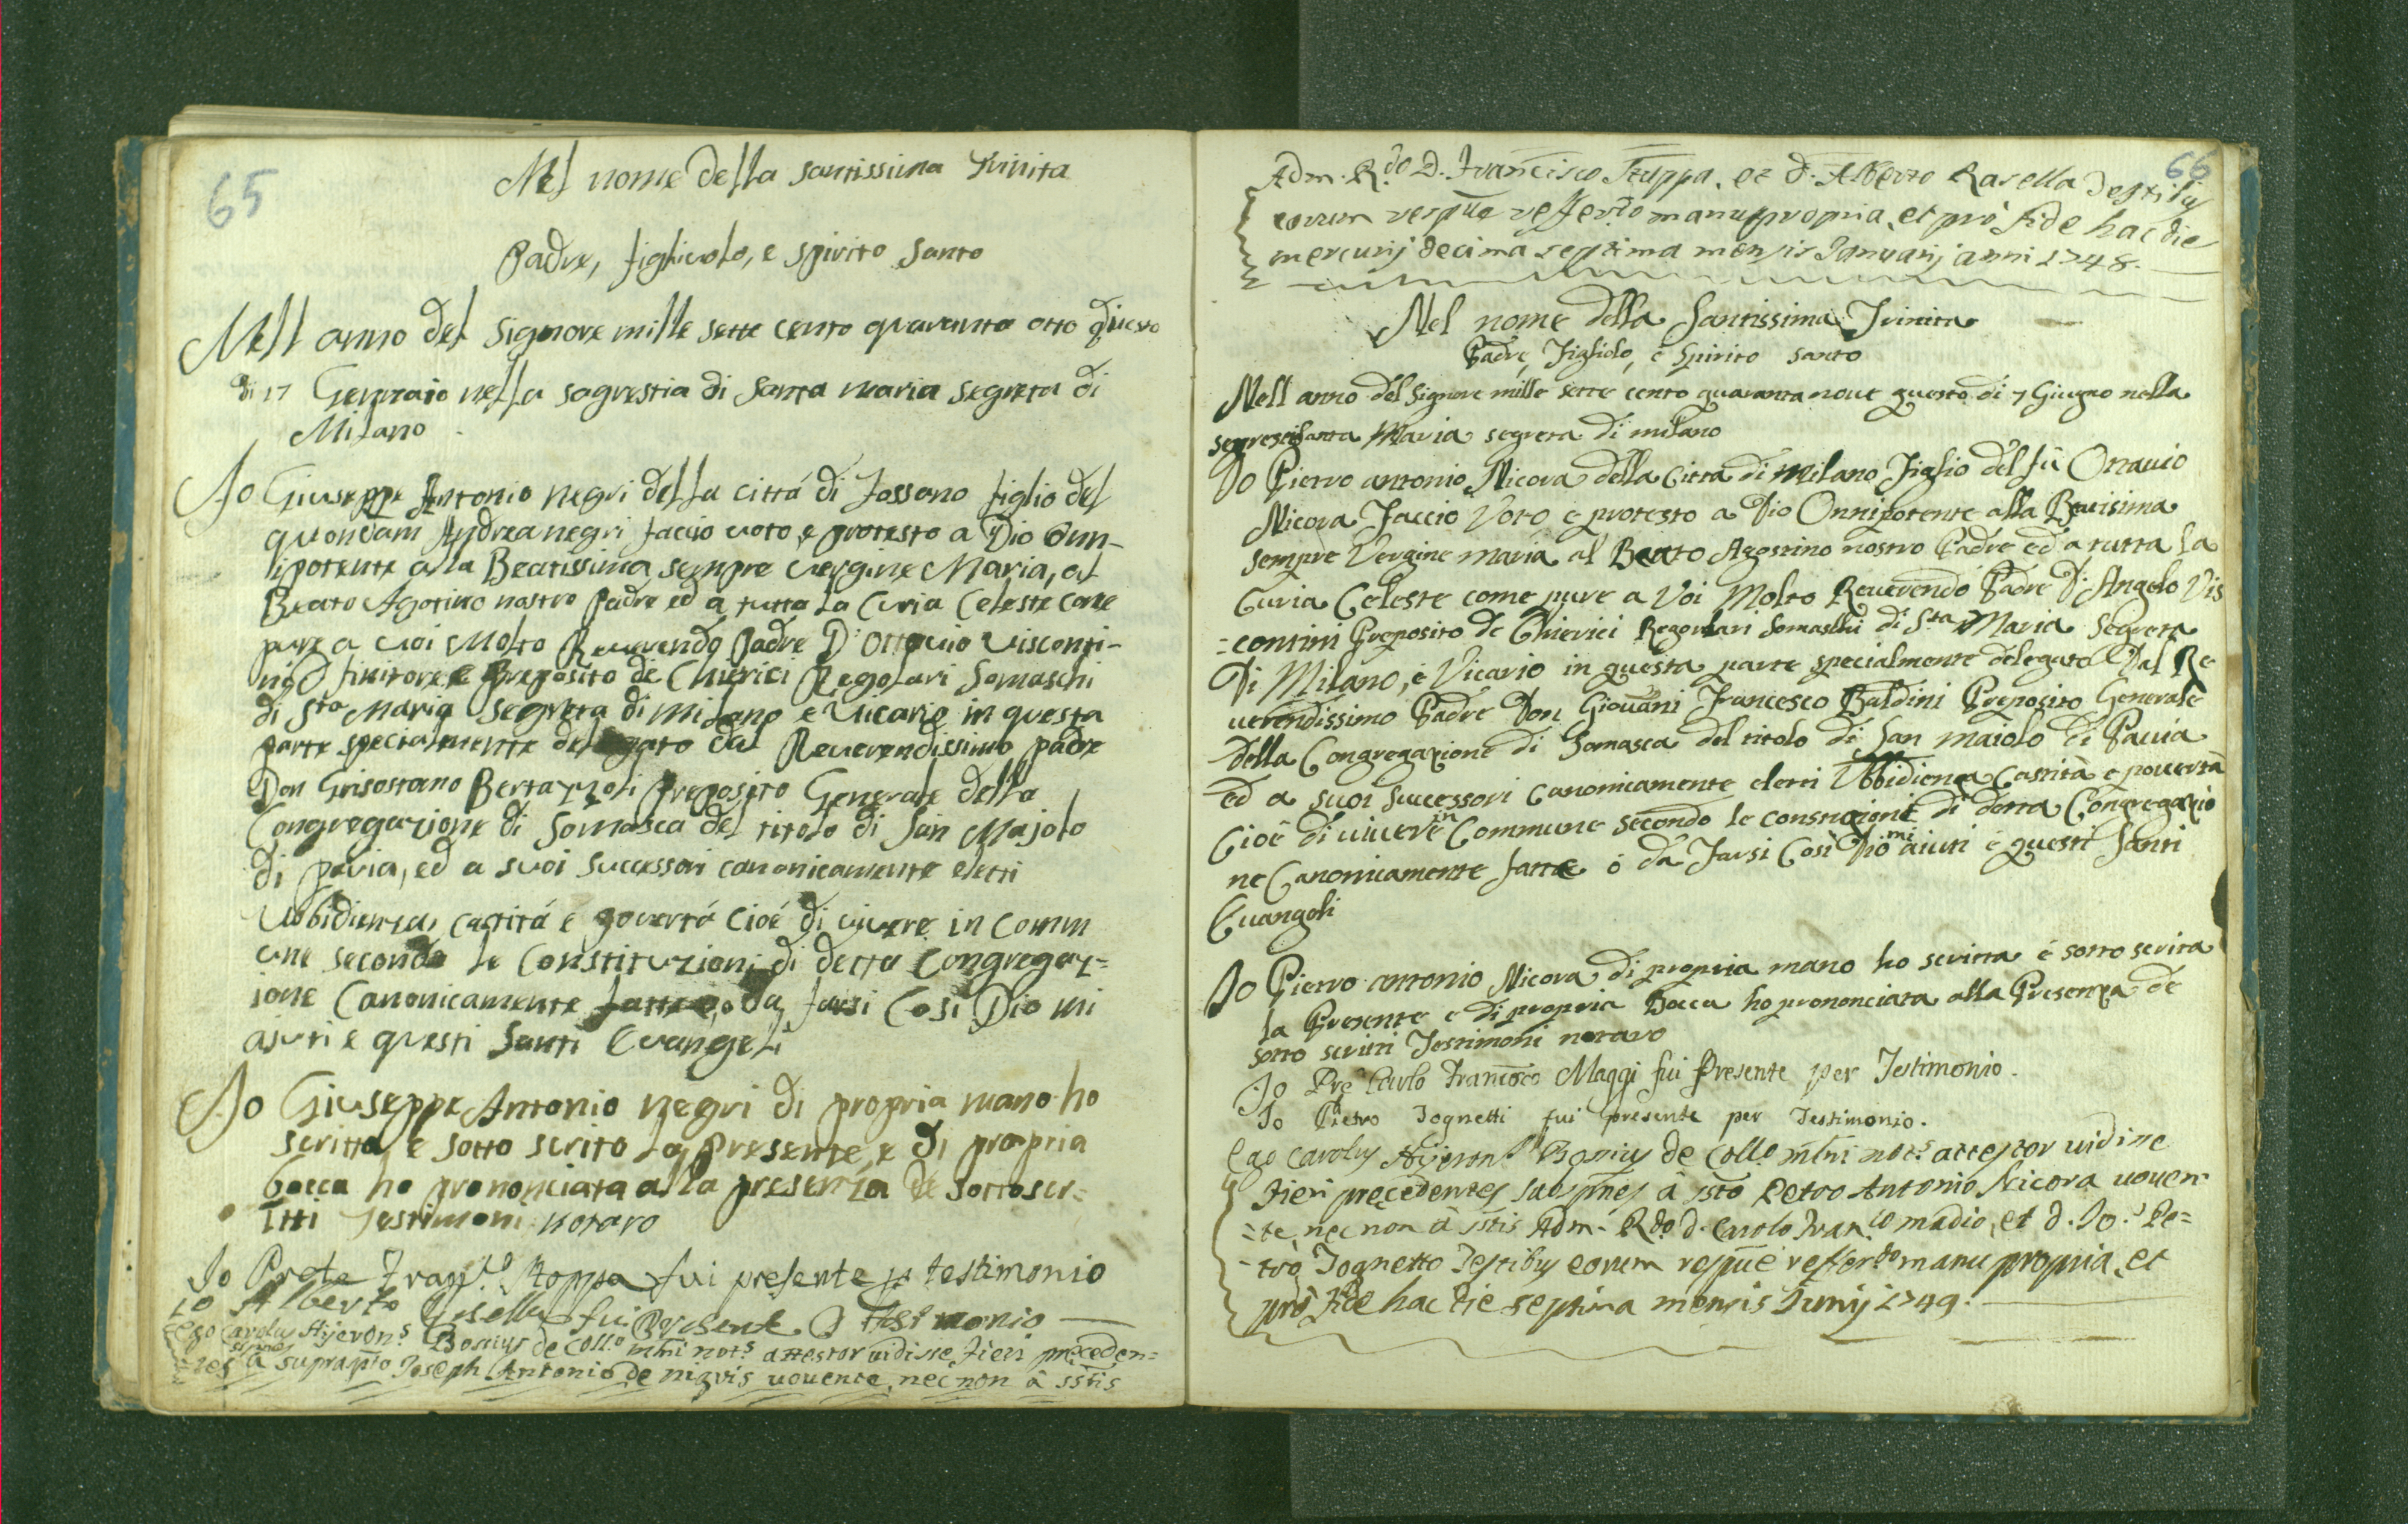 65
Nel nome della santissima Trinita
Padre, figliuolo, e spirito Santo
Nell anno del Signore mille sette cento quaranta otto questo
di 17 Gennaio nella sagrestia di Santa maria segreta di
Milano
Jo Giuseppe Antonio negri della cittá di Fossano figlio del
quondam Andrea negri faccio voto, e protesto a Dio Onn-
ipotente alla Beatissima sempre vergine Maria, al
Beato Agotino nostro Padre ed a tutta la Curia Celeste come
pure a voi Molto Reverendo Padre D. Ottavio Visconti-
ni Preposito de Chierici Regolari Somaschi
di Sta Maria Segreta di Milano e Vicario in questa
parte specialmente delegato dal Reverendissimo padre
Don Grisostano Bertazzoli Preposito Generale della
Congregazione di Somasca del titolo di San Majolo
di pavia, ed a suoi successori canonicamente eletti
Ubbidienza, castitá e povertá Cioé di vivere in Comm
une secondo le Constituzioni di detta Congregaz=
ione Canonicamente fatte, o da farsi Cosi Dio mi
ajuti e questi Santi Evangeli
Jo Giuseppe Antonio negri di propria mano ho
scritta e sotto scrito la Presente, e di propria
bocca ho prononciata alla presenza de sottoscr=
itti Testimoni notaro
Jo Prete Franco. Stoppa fui presente p testimonio
io Alberto fui Presente testimonio
Ego Carolus Hyerons. Bonius de Collo. mlni nots. attestor vidisse fieri preceden=
=tes sspnes à suprapto Joseph Antonio de nigris vovente, nec non à sstis
66
Adm. Rdo D. Francisco Stuppa, et D. Alberto Rasella Testibus
eorum respue refferdo manu propria, et pro fide hac die
mercurij decima septima mensis Januarij anni 1748.
Nel nome della Santissima Trinita
Padre, Figliolo, e Spirito santo
Nell anno del Signore mille sette cento quaranta nove questo di 7 Giugno nella
Maria segreta di milano
Jo Pietro antonio Nicora della Citta di Milano Figlio del fù Ottavio
Nicora Faccio Voto e protesto a Dio Onnipotente alla Beatisima
sempre Vergine maria al Beato Agostino nostro Padre ed a tutta la
Curia Celeste come pure a Voi Molto Reverendo Padre D. Angelo Vis
=contini Preposito de Chierici Regolari Somaschi di Sta Maria Segreta
Di Milano, e Vicario in questa parte specialmente delegato Dal Re
verendissimo Padre Don Giovani Francesco Baldini Preposito Generale
della Congregazione di Somasca del titolo di San maiolo di Pavia
ed a suoi successori Canonicamente eletti Ubbidienza Castità e povertà
Cioè di vivere in Commune secondo le constizioni di detta Congregazio
ne Canonicamente fatte ó da Farsi Cosi Dio mi aiuti e questi Santi
Evangoli
Jo Pietro antonio Nicora di propria mano ho scritta é sotto scrita
la Presente e di propria Bocca ho prononciata alla Presenza de
sotto scritti Testimoni notaro
Jo Pre Carlo Franco Maggi fui Presente per Testimonio.
Jo Pietro Tognetti fui presente per Testimonio.
Ego Carolus Hyerons. Bonius de Collo. mlni nots. attestor vidisse
Fieri precedentes sspnes à ssto Petro Antonio Nicora voven-
=te, nec non à sstis Adm. Rdo. D. Carolo Franco madio, et D. Jo. Pe=
=tro Tognetto Testibus eorum respue refferdo manu propria, et
pro fide hac die septima mensis Junij 1749.